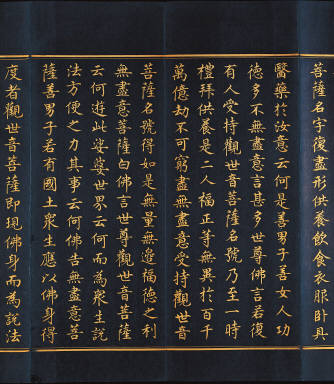 菩薩名字復盡形供養飲食衣服卧具
醫藥於汝意云何是善男子善女人功
德多不無盡意言甚多世尊佛言若復
有人受持觀世音菩薩名號乃至一時
禮拜供養是二人福正等無異於百千
萬億劫不可窮盡無盡意受持觀世音
菩薩名號得如是無量無邊福德之利
無盡意菩薩白佛言世尊觀世音菩薩
云何遊此娑婆世界云何而為衆生說
法方便之力其事云何佛告無盡意菩
薩善男子若有國土衆生應以佛身得
度者觀世音菩薩即現佛身而為說法